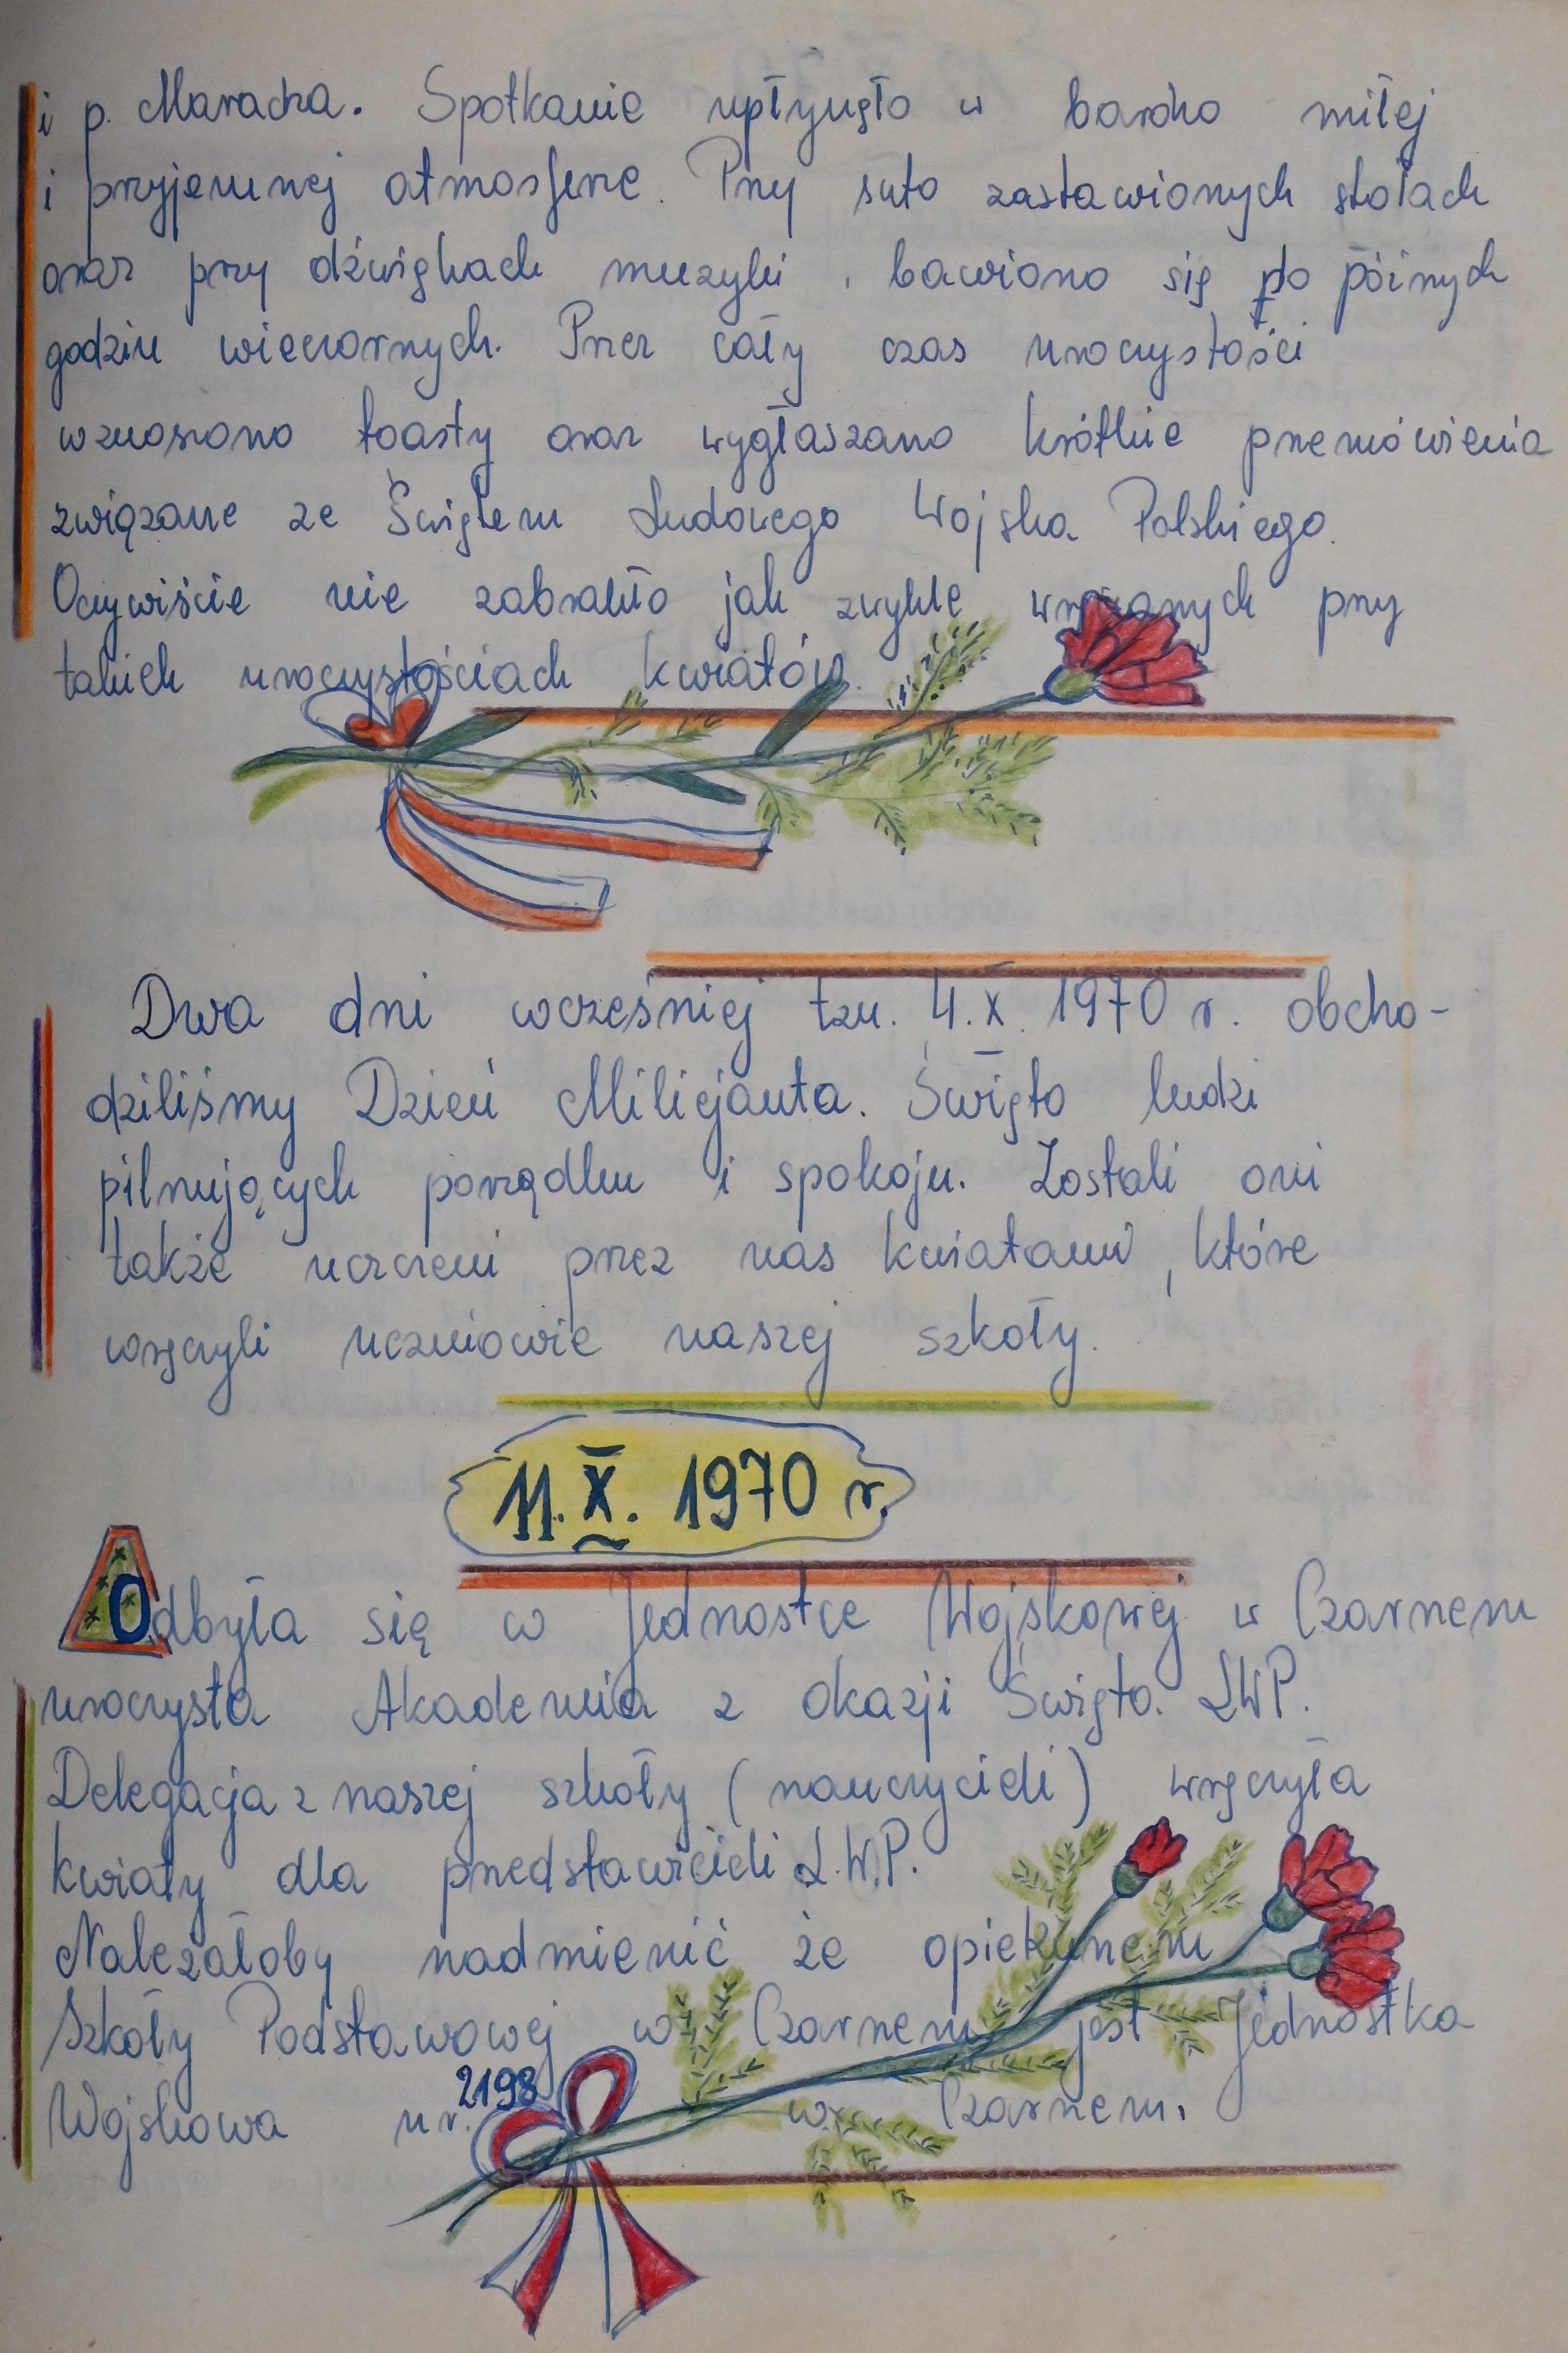 i p. Maracha. Spotkanie upłynęło w bardzo miłej
i przyjemnej atmosferze. Przy suto zastawionych stołach
oraz przy dźwiękach muzyki, bawiono się do późnych
godzin wieczornych. Przez cały czas uroczystości
wznoszono toasty oraz wygłaszano krótkie przemówienia
związane ze Świętem Ludowego Wojska Polskiego.
Oczywiście nie zabrakło jak zwykle wręczanych przy
takich uroczystościach kwiatów.
Dwa dni wcześniej tzn. 4.X.1970 r. obcho-
dziliśmy Dzień Milicjanta. Święto ludzi
pilnujących porządku i spokoju. Zostali oni
także uczczeni przez nas kwiatami, które
wręczyli uczniowie naszej szkoły.
11.X.1970 r.
Odbyła się w Jednostce Wojskowej w Czarnem
uroczysta Akademia z okazji Święta. LWP.
Delegacja z naszej szkoły (nauczycieli) wręczyła
kwiaty dla przedstawicieli L.W.P.
Należałoby nadmienić że opiekunem
Szkoły Podstawowej w Czarnem jest Jednostka
Wojskowa nr. 2198 w Czarnem.